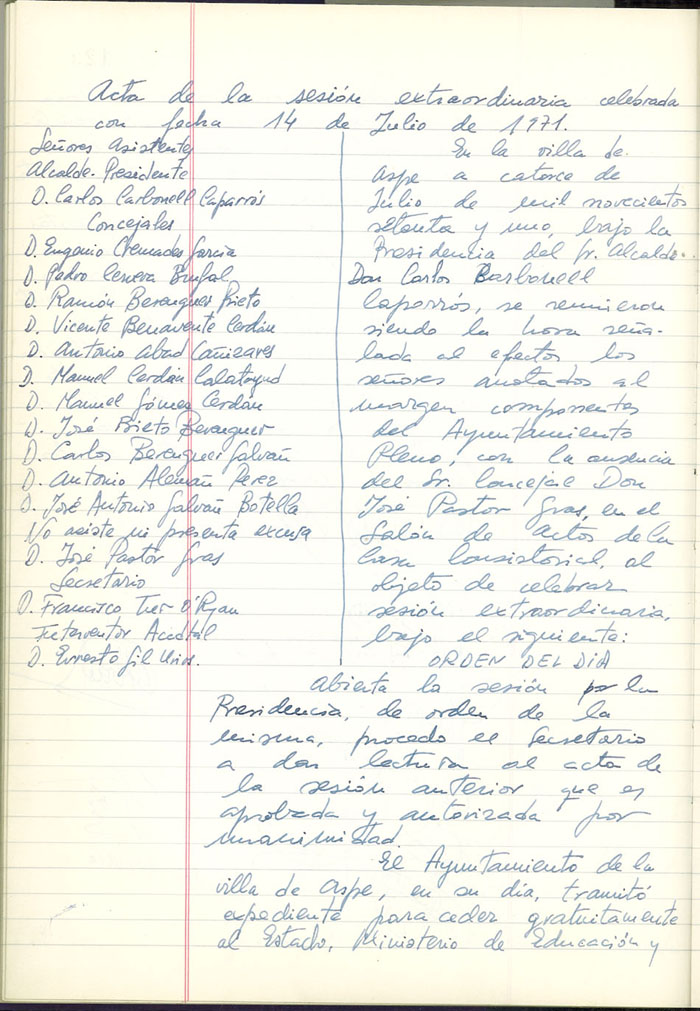 Acta de la sesión extraordinaria celebrada
con fecha 14 de Julio de 1971.
Señores Asistentes
Alcalde-Presidente
D. Carlos Carbonell Caparrós
Concejales
D. Eugenio Cremades García
D. Pedro Cervera Brufal
D. Ramón Berenguer Prieto
D. Vicente Benavente Cerdán
D. Antonio Abad Cañizares
D. Manuel Cerdán Calatayud
D. Manuel Gómez Cerdán
D. José Prieto Berenguer
D. Carlos Berenguer Galván
D. Antonio Alemañ Perez
D. José Antonio Galván Botella
No asiste ni presenta excusa
D. José Pastor Gras
Secretario
D. Francisco Tuer O'Ryan
Interventor Acctal
D. Ernesto Gil
En la villa de
Aspe a catorce de
Julio de mil novecientos
setenta y uno, bajo la
Presidencia del Sr. Alcalde.
Don Carlos Barbonell
Caparrós, se reunieron
siendo la hora seña-
lada al efectos los
señores anotados al
margen componentes
del Ayuntamiento
Pleno, con la ausencia
del Sr. Concejal Don
José Pastor Gras, en el
Salón de Actos de la
Casa Consistorial, al
objeto de celebrar
sesión extraordinaria,
bajo el siguiente:
ORDEN DEL DIA
Abierta la sesión por la
Presidencia, de orden de la
misma, procedo el Secretario
a dar lectura al acta de
la sesión anterior que es
aprobada y autorizada por
unanimidad.
El Ayuntamiento de la
villa de Aspe, en su día, tramitó
expediente para ceder gratuitamente
al Estado, Ministerio de Educación y